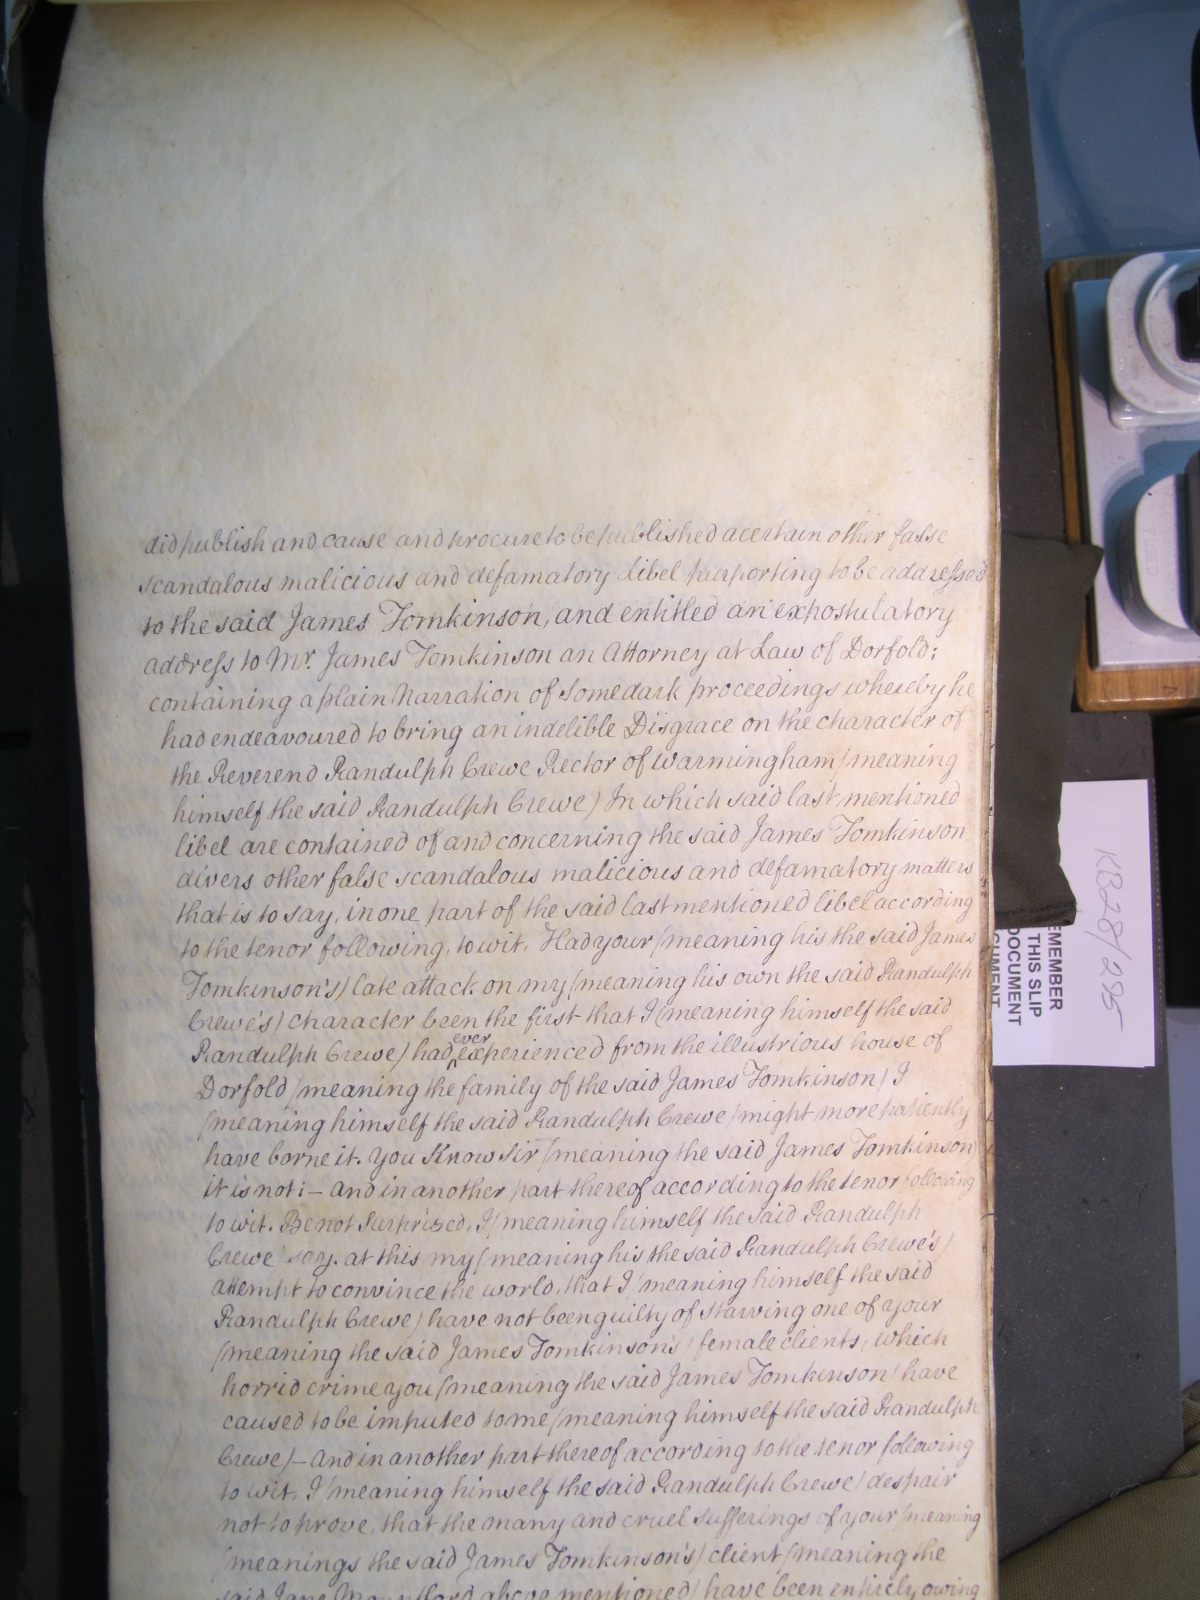 did publish and cause and procure to be published a certain other false
scandalous malicious and defamatory Libel purporting to be addressed
to the said James Tomkinson, and entitled an expostulatory
address to Mr. James Tomkinson an Attorney at Law of Dorfold;
containing a plain Narration of Some dark proceedings whereby he
had endeavoured to bring an indelible Disgrace on the character of
the Reverend Randulph Crewe Rector of Warmingham (meaning
himself the said Randulph Crewe) In which said last mentioned
libel are contained of and concerning the said James Tomkinson
divers other false scandalous malicious and defamatory matters
that is to say, in one part of the said last mentioned libel according
to the tenor following, to wit, Had your (meaning his the said James
Tomkinson's) late attack on my (meaning his own the said Randulph
Crewe's) character been the first that I (meaning himself the said
Randulph Crewe) had ever experienced from the illustrious house of
Dorfold (meaning the family of the said James Tomkinson) I
(meaning himself the said Randulph Crewe) might more patiently
have borne it. You Know Sir (meaning the said James Tomkinson)
it is not; – And in another part thereof according to the tenor following
to wit. Be not Surprized, I (meaning himself the said Randulph
Crewe) say, at this my (meaning his the said Randulph Crewe's)
attempt to convince the world, that I (meaning himself the said
Randulph Crewe) have not been guilty of Starving one of your
(meaning the said James Tomkinson's) female clients, which
horrid crime you (meaning the said James Tomkinson) have
caused to be imputed to me (meaning himself the said Randulph
Crewe) – And in another part thereof according to the tenor following
to wit, I (meaning himself the said Randulph Crewe) despair
not to prove, that the many and cruel Sufferings of your (meaning
(meanings the said James Tomkinson's) client (meaning the
said Jane above mentioned) have been entirely owing
KB28/295
REMEMBER
THIS SLIP
DOCUMENT
CUMENT